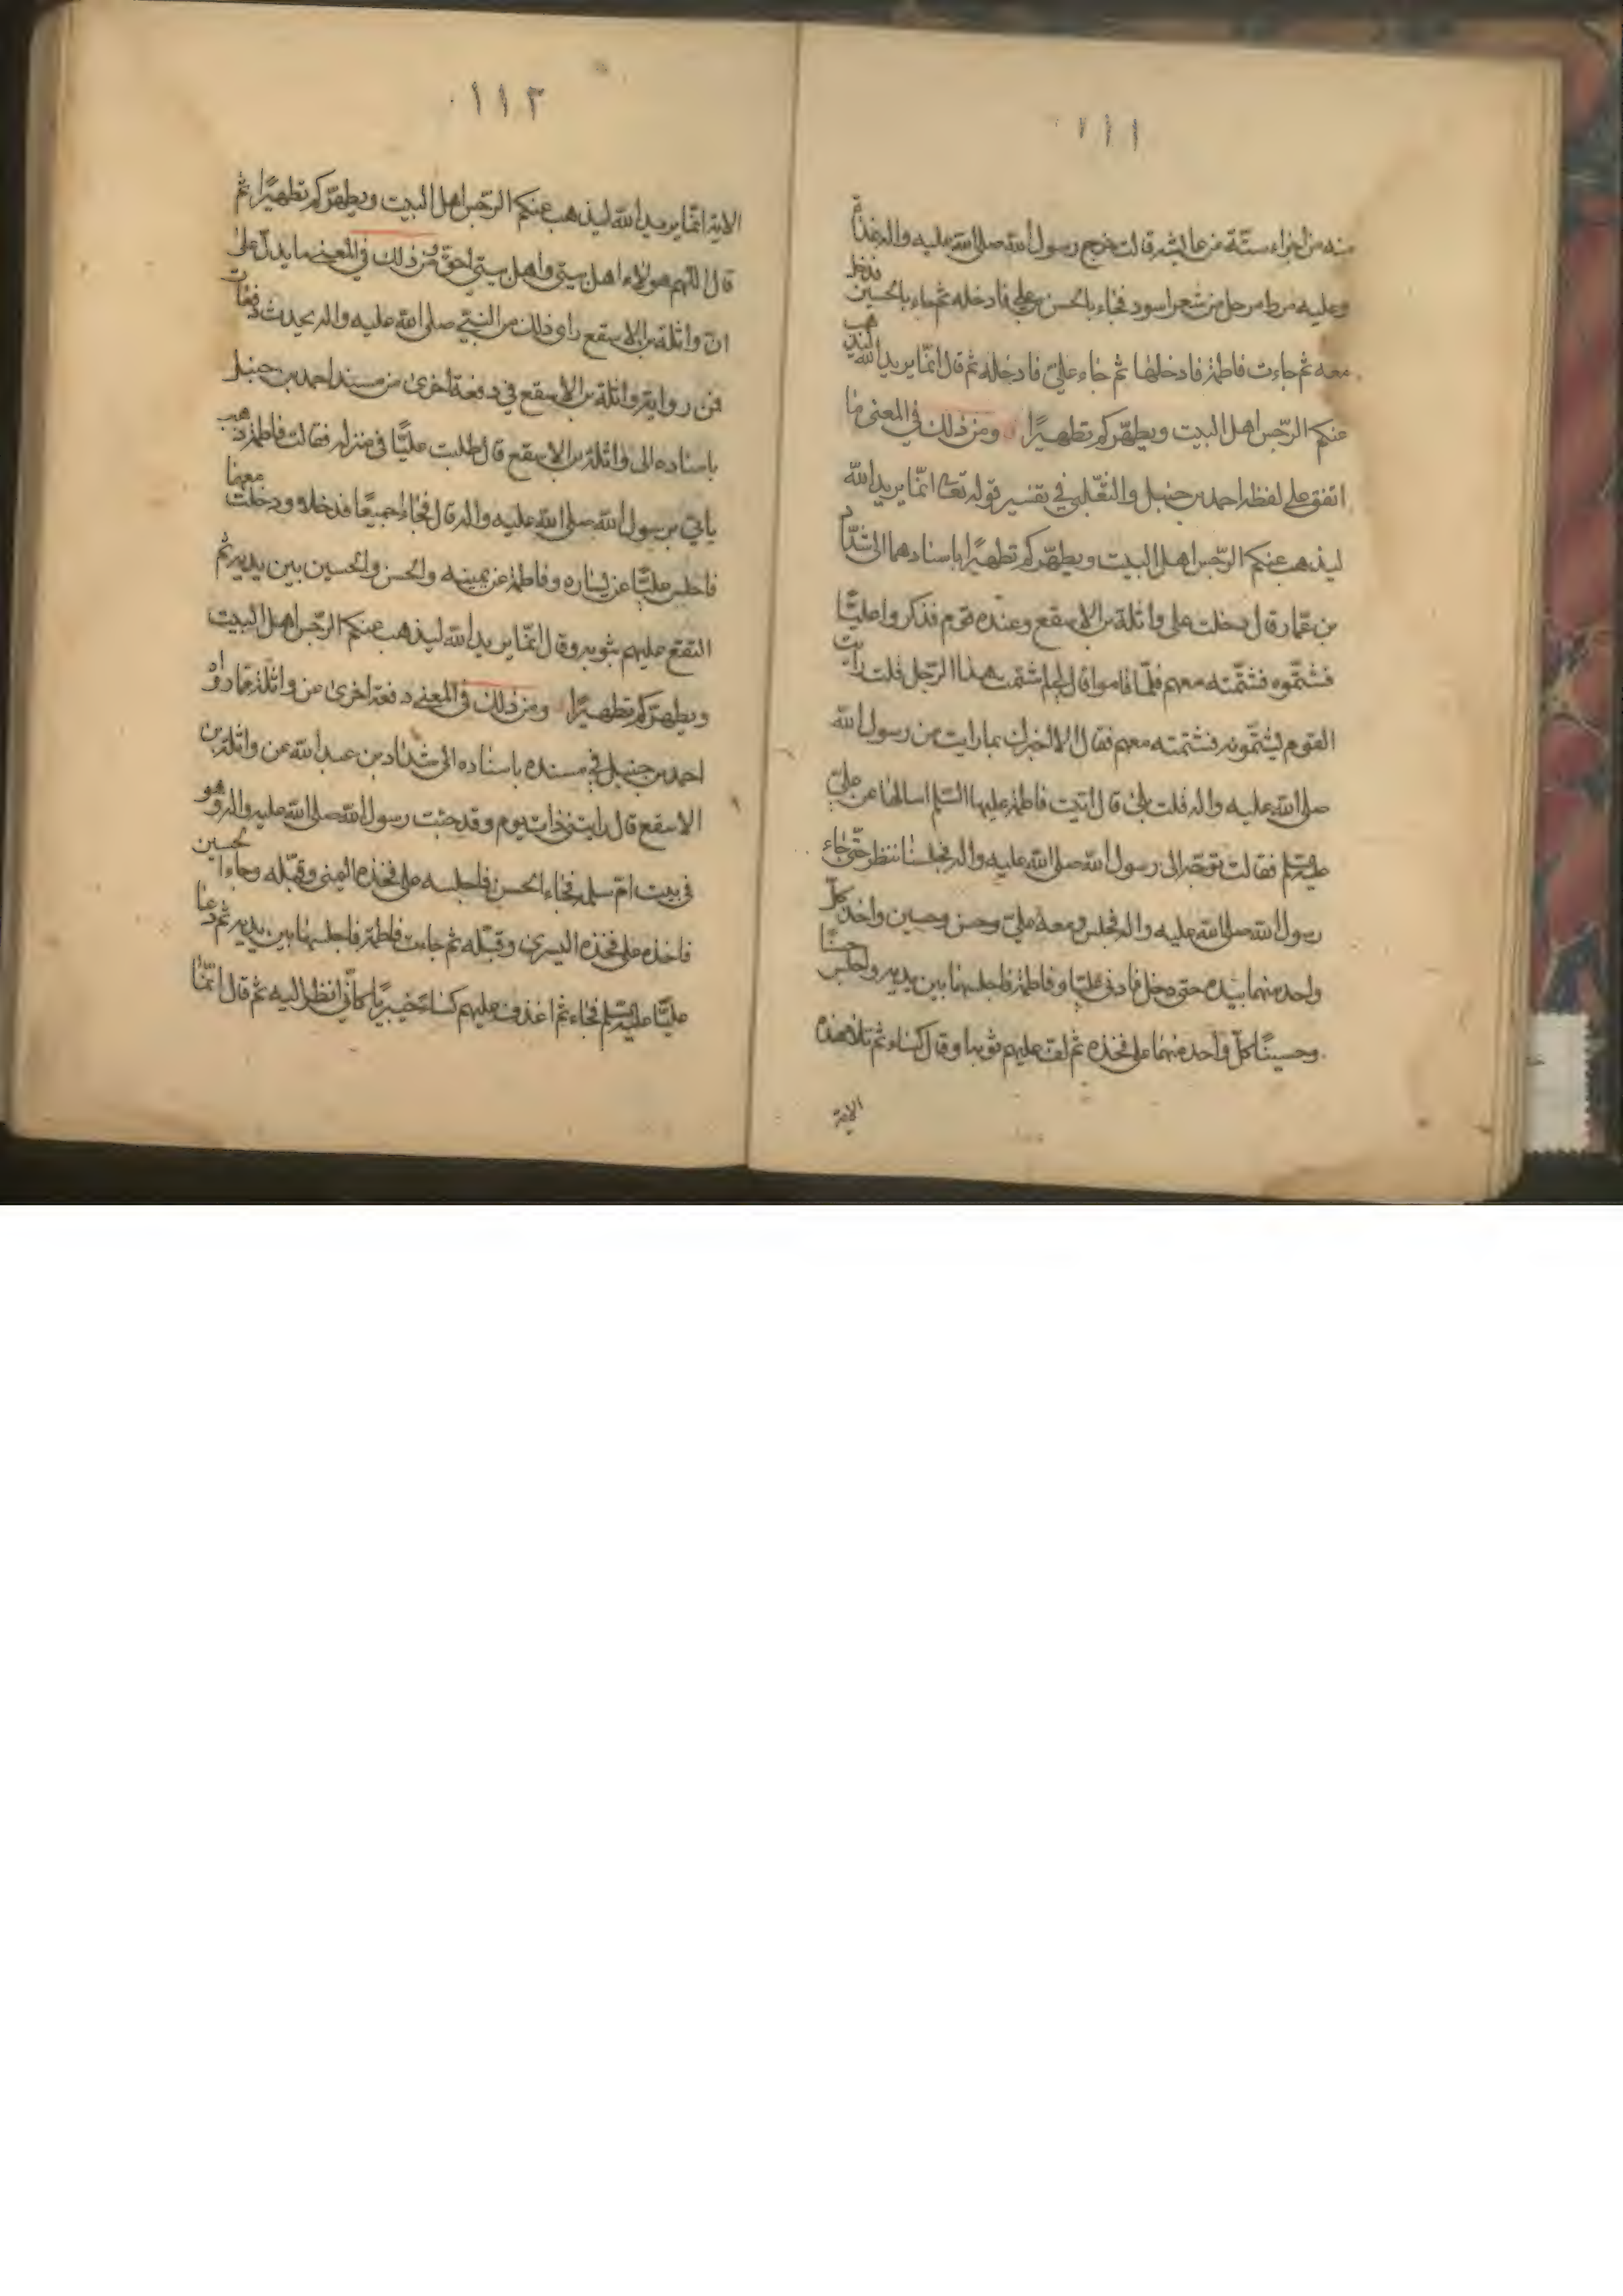 ١١١
منه من اجزاء ستة عن عايشه قالت خرج رسول الله صلى الله عليه واله غداة
وعليه مرط مرحل من شعر اسود فجاء بالحسن بن علي فادخله ثم جاء بالحسين فدخل
معه ثم جاءت فاطمة فادخلها ثم جاء عليّ فادخله ثم قال انّما يريد الله ليذهب
عنكم الرّجس اهل البيت ويطهّركم تطهيرًا ومن ذلك في المعنى ما
اتفق على لفظه احمد بن حنبل والثّعلبي في تفسير قوله تعا انّما يريد الله
ليذهب عنكم الرّجس اهل البيت ويطهّركم تطهيرًا باسنادهما الى شدّاد
بن عمّار قال دخلت على واثلة بن الاسقع وعنده قوم فذكروا عليًّا
فشتموه فشتمته معهم فلمّا قاموا قال لي لم شتمت هذا الرّجل قلت رايت
القوم يشتمونه فشتمته معهم فقال الا اخبرك بما رايت من رسول الله
صلى الله عليه واله قلت بلى قال اتيت فاطمة عليها السّلم اسالها عن عليّ
عليه السّلم فقالت توجّه الى رسول الله صلى الله عليه واله فجلسنا ننتظر حتّى جاء
رسول الله صلى الله عليه واله فجلس ومعه عليّ وحسن وحسين واخذ كلّ
واحد منهما بيده حتى دخل فادنى عليّا وفاطمة فاجلسهما بين يديه واجلس حسنًا
وحسينًا كلّ واحد منهما على فخذه ثم لفّ عليهم ثوبه او قال كساء ثم تلا هذه
الاية
١١٢
الاية انّما يريد الله ليذهب عنكم الرّجس اهل البيت ويطهّركم تطهيرًا ثم
قال اللّهم هولاء اهل بيتي واهل بيتي احقّ ومن ذلك في المعنى ما يدلّ على
ان واثلة بن الاسقع راى ذلك من النّبيّ صلى الله عليه واله يحدث دفعات
فمن رواية واثلة بن الاسقع في دفعة اخرى من مسند احمد بن حنبل
باسناده الى واثلة بن الاسقع قال طلبت عليًّا في منزله فقالت فاطمة ذهب
ياتي برسول الله صلى الله عليه واله قال فجاءا جميعًا فدخلا ودخلت معهما
فاجلس عليًّا عن يساره وفاطمة عن يمينه والحسن والحسين بين يديه ثم
التفع عليهم بثوبه وقال انّما يريد الله ليذهب عنكم الرّجس اهل البيت
ويطهّركم تطهيرًا ومن ذلك في المعنى دفعة اخرى عن واثلة ممّا رواه
احمد بن حنبل في مسنده باسناده الى شدّاد بن عبد الله عن واثلة بن
الاسقع قال رايتني ذات يوم وقد جئت رسول الله صلى الله عليه واله وهو
في بيت امّ سلمه فجاء الحسن فاجلسه على فخذه اليمنى وقبّله وجاء الحسين
فاخذه على فخذه اليسرى وقبّله ثم جاءت فاطمة فاجلسها بين يديه ثم دعا
عليًّا عليه السّلم فجاء ثم اغدف عليهم كساء خيبريًّا كاني انظر اليه ثم قال انّما